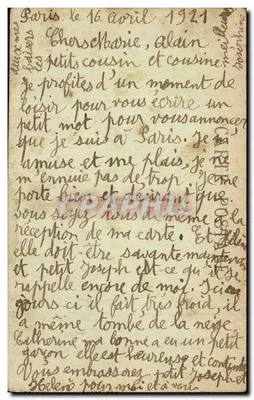 Paris le 16 avril 1921
Chers Marie, Alain
petits cousin et cousine
je profites d'un moment de
loisir pour vous écrire un
petit mot pour vous annoncer
que je suis à Paris. Je m'
amuse et me plais, je ne
m'ennuie pas de trop. Je me
porte bien et désirant que
vous soyez tous de même à la
réception de ma carte. Et
elle doit-être savante maintenant
et petit Joseph est ce qu'il se
rappelle encore de moi. Ici
jours ci il fait très froid, il
a même tombe de la neige
Catherine ma bonne a eu un petit
garçon elle est heureuse et contente
Vous embrasserez petit Joseph et
Helene pour moi et à vous
meilleurs
baisers
CARTE POSTALE
CPAPHIL